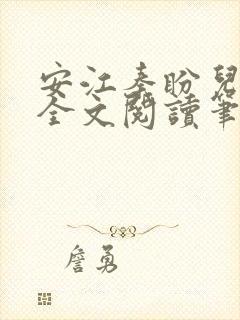 安江秦盼兒
全文閱讀筆
詹勇